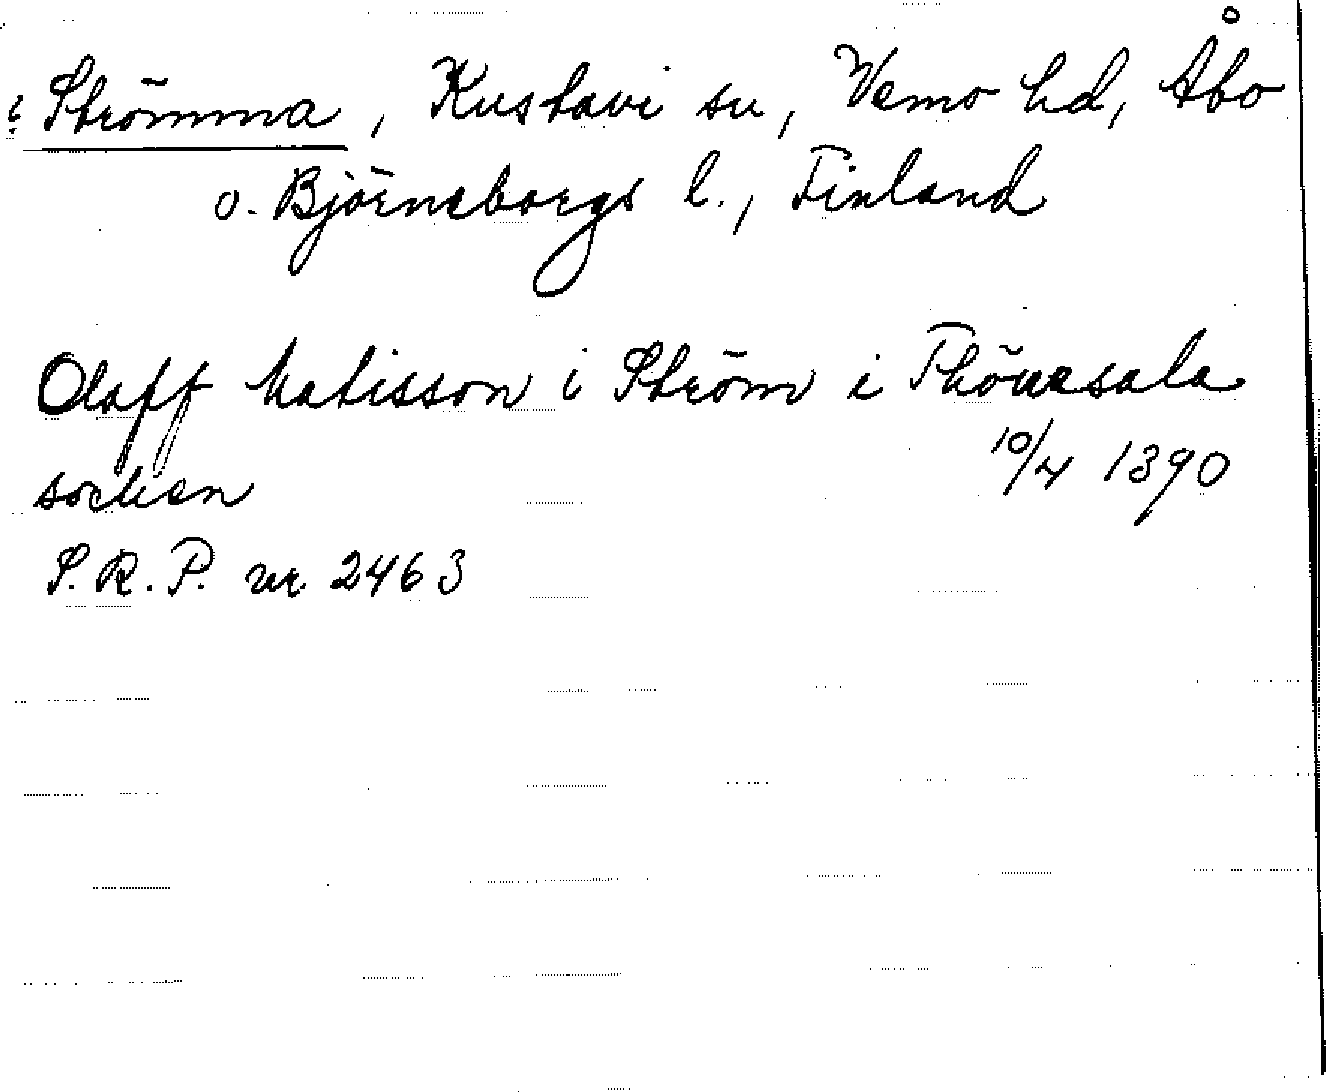 ? Strömma, Kustavi sn, Vemo hd, Åbo
o. Björneborgs l., Finland
Olaff Matisson i Ström i Thöuesala
10/4 1390
socken
S.R.P. nr 2463